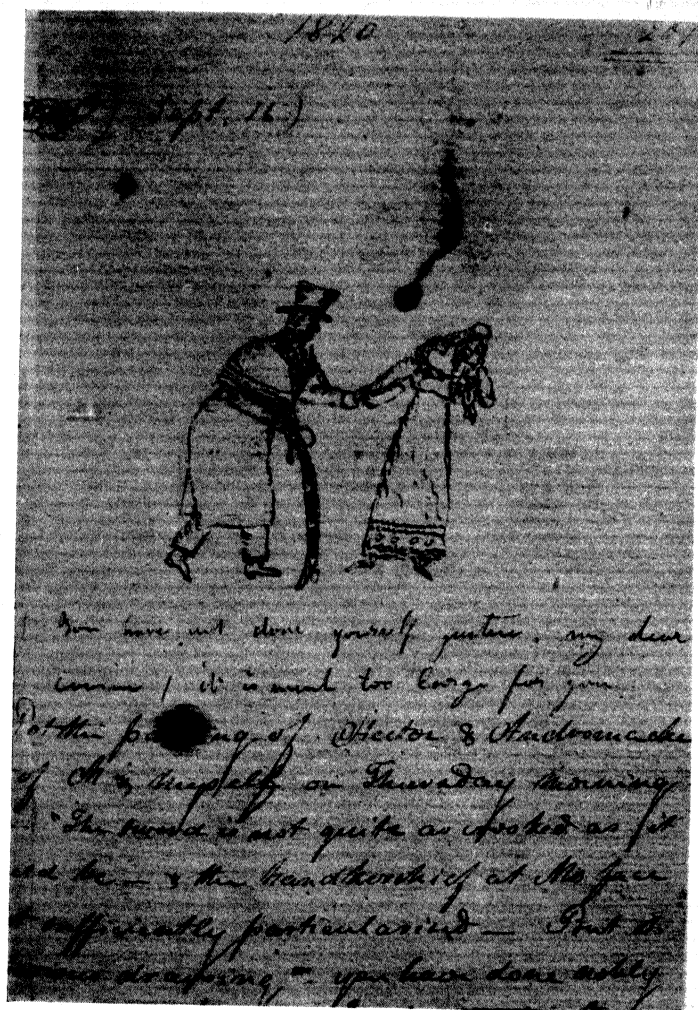 1820
Sept. 16)
You have not done yourself justice, my dear
it is much too large for you
Not the parting of Hector & Andromache
of on Thursday morning
The sword is not quite as crooked as it
be — & the handkerchief at Ms face
sufficiently particularised — But as
drawing, you have done nobly